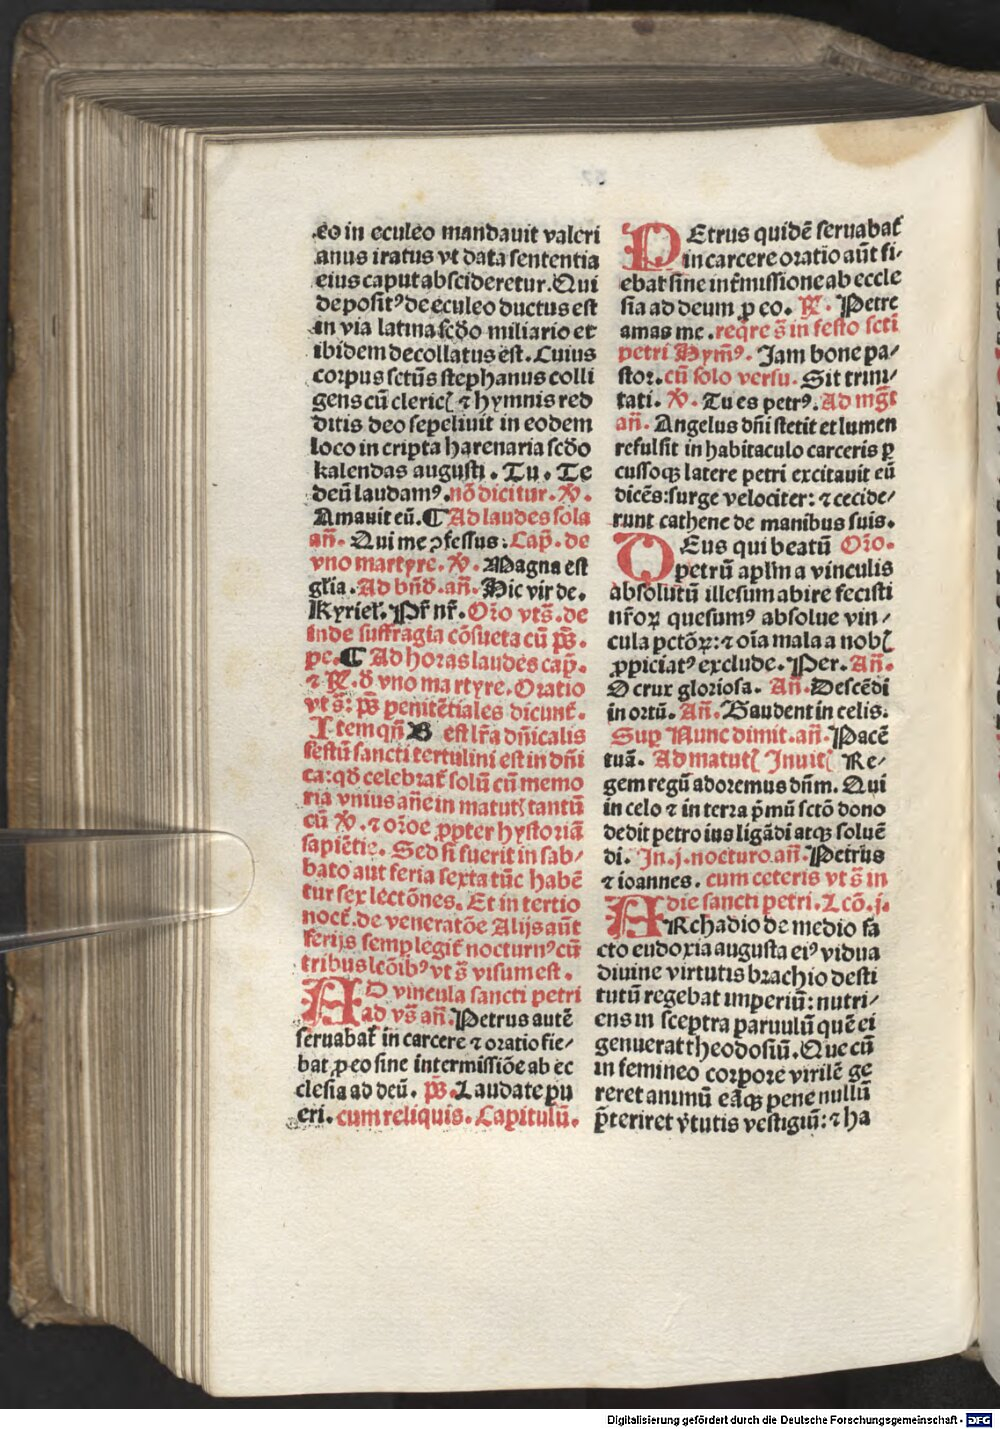 eo in eculeo mandauit valeri
anus iratus vt data sententia
eius caput abscideretur. Qui
depositꝰ de eculeo ductus est
in via latina scďo miliario et
ibidem decollatus est. Cuius
corpus sctūs stephanus colli
gens cū cleric⁊ hymnis red
ditis deo sepeliuit in eodem
loco in cripta harenaria scďo
kalendas augusti. Tu. Te
deū laudamꝰ. nō dicitur. ℣.
Amauit eū. ¶ Ad laudes sola
añ. Qui me ꝯfessus. Cap̄. de
vno martyre. ℣. Magna est
gl̄ia. Ad bn̄d. añ. Hic vir de.
Kyriel̄. Pr̄ nr̄. Or̄o vt s̄. de
inde suffragia cōsueta cū p̄s.
pc. ¶ Ad horas laudes cap̄.
⁊ ℟. ď vno martyre. Oratio
vt s̄: p̄s penitētiales dicunt̄.
Item qn̄ B est lr̄a dn̄icalis
festū sancti tertulini est in dn̄i
ca: qď celebrat̄ solū cū memo
ria vnius añe in matut̄ tantū
cū ℣. ⁊ or̄oe ꝓpter hystoriā
sapiētie. Sed si fuerit in sab/
bato aut feria sexta tūc habē
tur sex lectōnes. Et in tertio
noct̄. de veneratōe Alijs aūt
ferijs semꝑ legit̄ nocturnꝰ cū
tribus lcōibꝰ vt s̄ visum est.
AD vincula sancti petri
ad vs̄ añ. Petrus autē
seruabat̄ in carcere ⁊ oratio fie/
bat ꝓ eo sine intermissiōe ab ec
clesia ad deū. p̄s. Laudate pu
eri. cum reliquis. Capitulū.
PEtrus quidē seruabat̄
in carcere oratio aūt fi-
ebat sine int̄missione ab eccle
sia ad deum ꝓ eo. ℟. Petre
amas me. reqr̄e s̄ in festo scti
petri Hymꝰ. Iam bone pa/
stor. cū solo versu. Sit trini/
tati. ℣. Tu es petrꝰ. Ad mḡt
añ. Angelus dn̄i stetit et lumen
refulsit in habitaculo carceris ꝑ
cussoqꝫ latere petri excitauit eū
dicēs: surge velociter: ⁊ cecide/
runt cathene de manibus suis.
DEus qui beatū Or̄o.
petrū apl̄m a vinculis
absolutū illesum abire fecisti
nr̄oꝝ quesumꝰ absolue vin/
cula pctōꝝ: ⁊ oīa mala a nob̄
ꝓpiciatꝰ exclude. Per. Añ.
O crux gloriosa. Añ. Descēdi
in ortū. Añ. Gaudent in celis.
Suꝑ Nunc dimit. añ. Pacē
tuā. Ad matut̄ Inuit̄ Re/
gem regū adoremus dn̄m. Qui
in celo ⁊ in terra p̄mū sctō dono
dedit petro ius ligādi atqꝫ soluē
di. In .j. nocturo añ. Petrus
⁊ ioannes. cum ceteris vt s̄ in
die sancti petri. Lcō. j.
ARchadio de medio fa
cto eudoxia augusta eiꝰ vidua
diuine virtutis brachio desti
tutū regebat imperiū: nutri/
ens in sceptra paruulū quē ei
genuerat theodosiū. Que cū
in femineo corpore virilē ge
reret animū eāqꝫ pene nullū
p̄teriret v̄tutis vestigiū: ⁊ ha
Digitalisierung gefördert durch die Deutsche Forschungsgemeinschaft - DFG